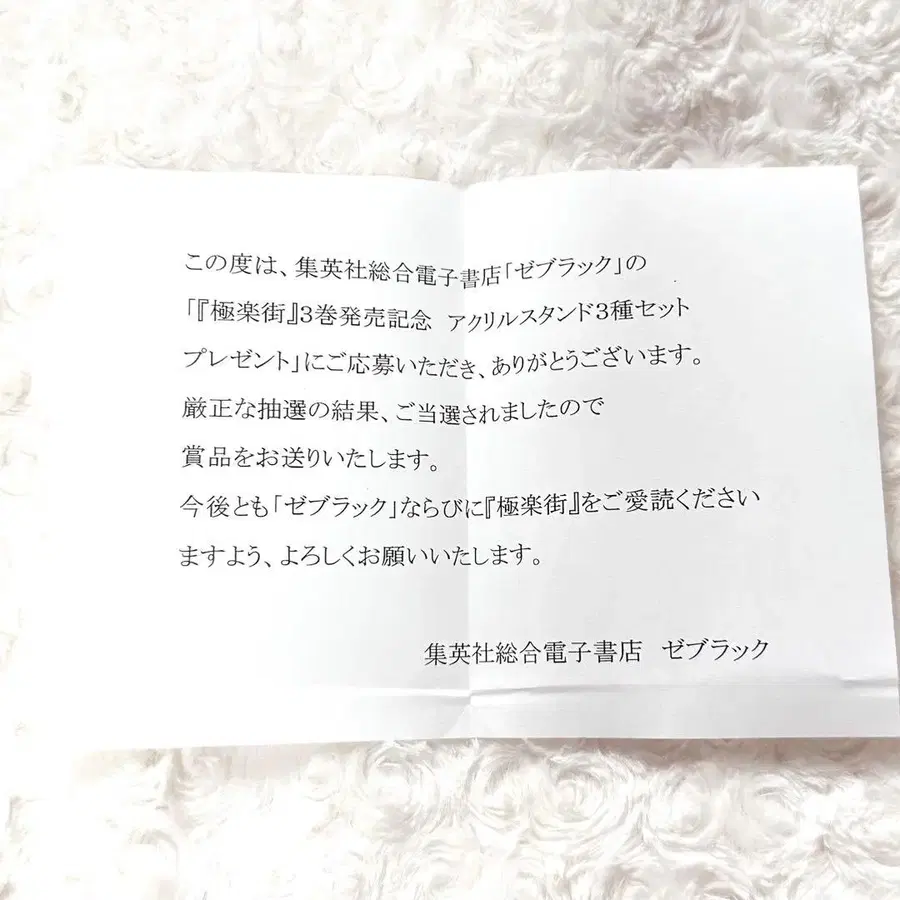 この度は、集英社総合電子書店「ゼブラック」の
「『極楽街』3巻発売記念　アクリルスタンド3種セット
プレゼント」にご応募いただき、ありがとうございます。
厳正な抽選の結果、ご当選されましたので
賞品をお送りいたします。
今後とも「ゼブラック」ならびに『極楽街』をご愛読ください
ますよう、よろしくお願いいたします。
集英社総合電子書店　ゼブラック